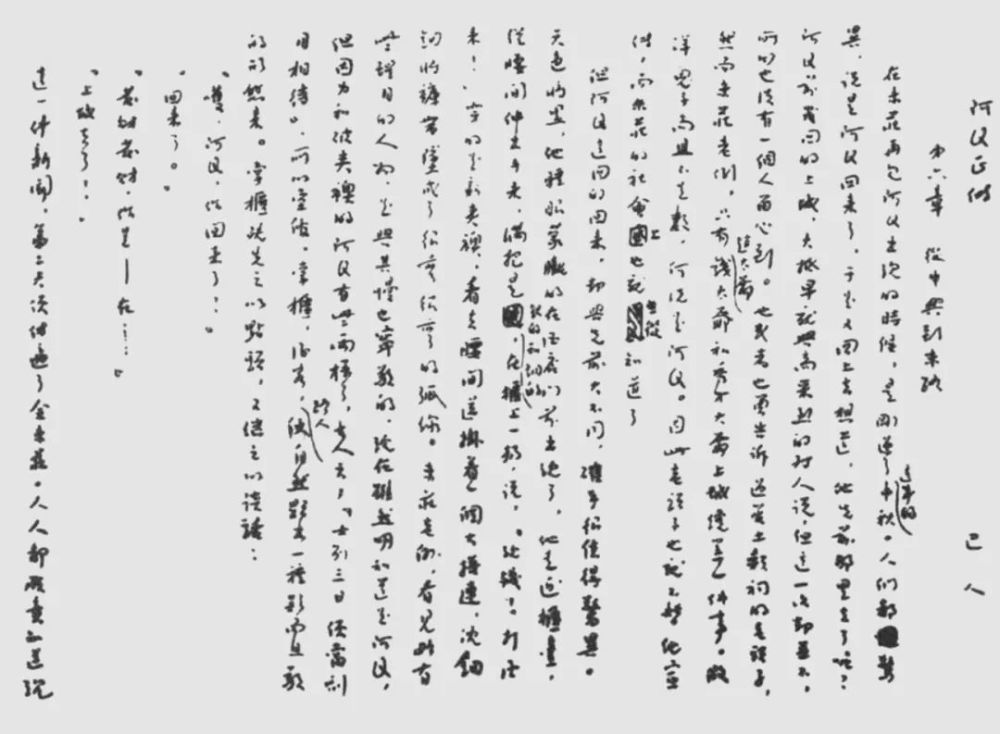 阿Q正傳 巴人
第六章 從中興到末路
在未莊再見阿Q出現的時候,是剛過了這年的中秋。人們都驚
異,說是阿Q回來了,于是又回上去想道,他先前那里去了呢?
阿Q前幾回的上城,大抵早就興高采烈的對人說,但這一次卻並不,
所以也沒有一個人留心到。他或者也曾告訴過管土穀祠的老頭子,
然而未莊老例,只有趙太爺錢太爺和秀才大爺上城纔算一件事。假
洋鬼子尚且不足數,何況是阿Q。因此老頭子也就不替他宣
傳,而未莊的社會上也就無從知道了
但阿Q這回的回來,卻與先前大不同,確乎很值得驚異。
天色將黑,他睡眼朦朧的在酒店門前出現了,他走近櫃臺,
從腰間伸出手來,滿把是銀的和銅的,在櫃上一扔,說,“現錢!打酒
來!”穿的是新夾襖,看去腰間還掛着一個大搭連,沈鈿
鈿的將褲帶墜成了很彎很彎的弧線。未莊老例,看見略有
些醒目的人物,是與其慢也寧敬的,現在雖然明知道是阿Q,
但因為和破夾襖的阿Q有些兩樣了,古人云,“士別三日便當刮
目相待”,所以堂倌,掌櫃,酒客,路人,便自然顯出一種疑而且敬
的形態來。掌櫃既先之以點頭,又繼之以談話:
“嚄,阿Q,你回來了!”
“回來了。”
“發財發財,你是——在……”
“上城去了!”
這一件新聞,第二天便傳遍了全未莊。人人都願意知道現